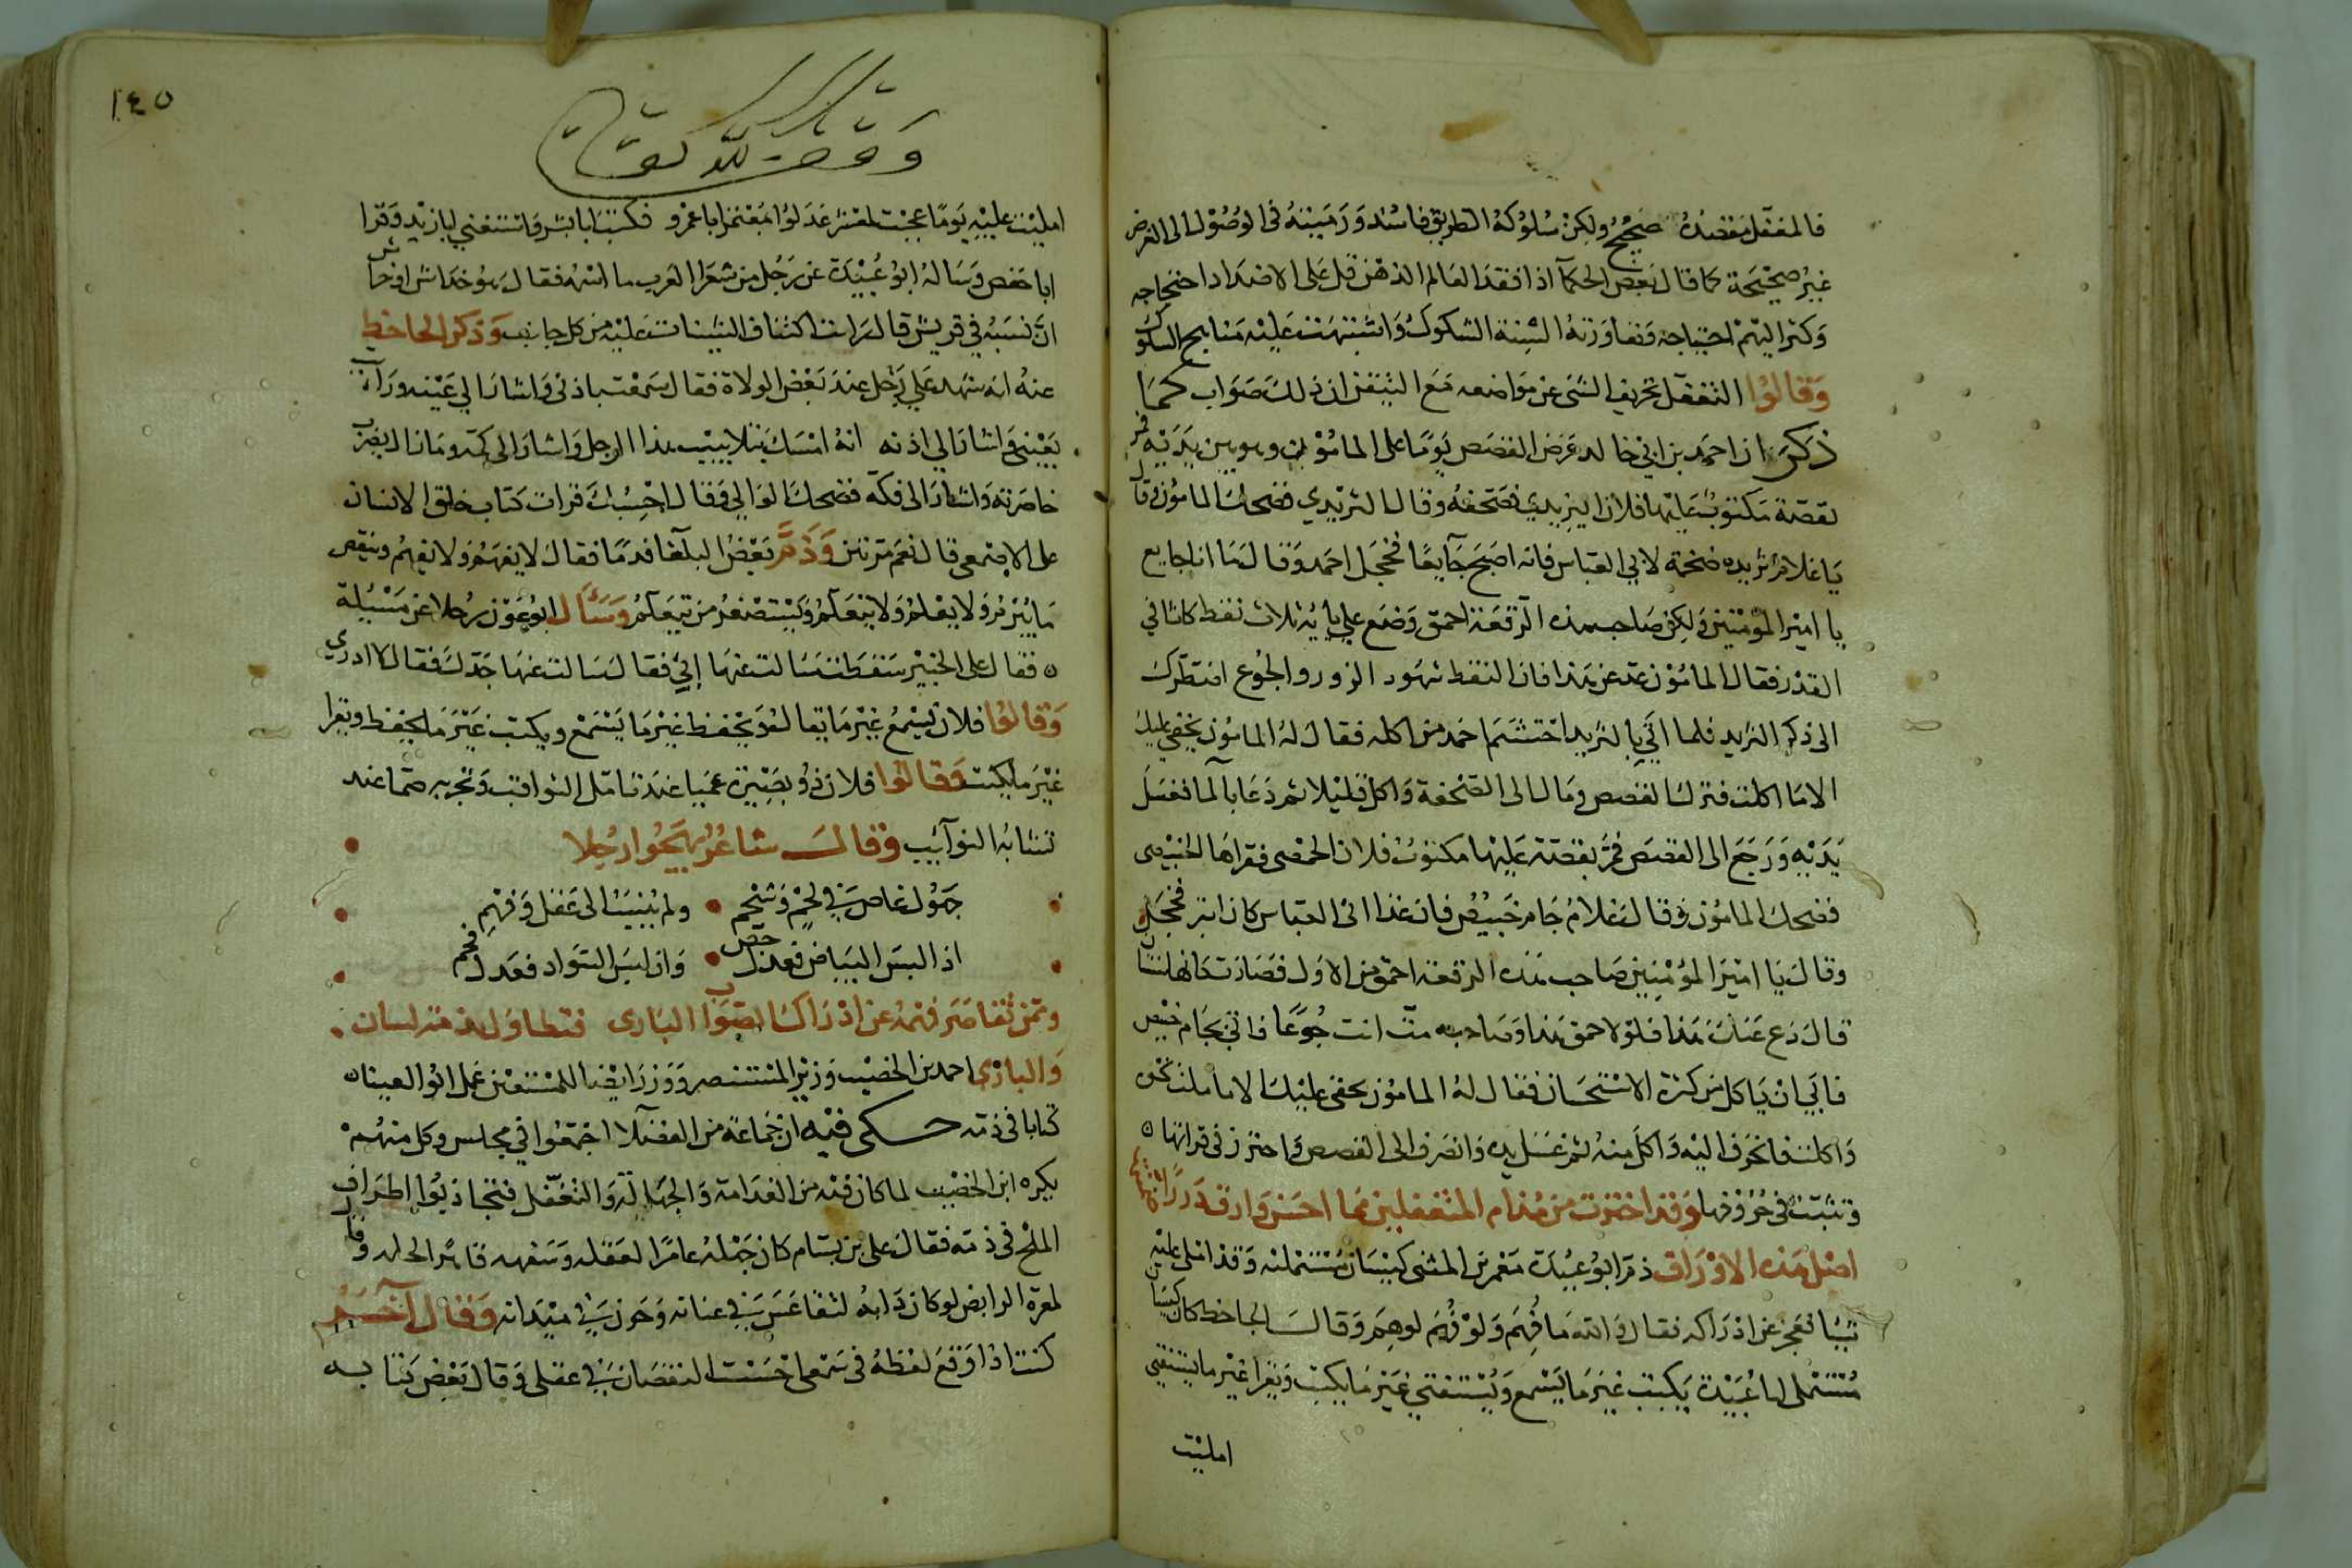 فالمغفل مقصده صحيح ولكن سلوكه الطريق فاسد ورميته في الوصول الى الغرض
غير صحيحة كما قال بعض الحكمآ اذا فقد العالم الذهن قل على الاضداد احتجاجه
وكثر اليهم احتياجه وتعاورته السنة الشكوك واشتبهت عليه مناهج السلوك
وقالوا التغفل تحريف الشى عن مواضعه مع التيقن ان ذلك صواب كما
ذكر ان احمد بن ابي خالد عرض القصص يوما على المامون وهو بين يديه فمر
بقصة مكتوب عليها فلان اليزيدي فصحفه وقال الثريدي فضحك المامون وقال
يا غلام ثريده ضخمة لابي العباس فانه اصبح جآيعا فخجل احمد وقال ما انا بجايع
يا امير المومنين ولكن صاحب هذه الرقعة احمق وضع على يايه ثلاث نقط كاثافي
القدر فقال المامون عد عن هذا فان النقط شهود الزور والجوع اضطرك
الى ذكر الثريد فلما اتي بالثريد احتشم احمد من اكله فقال له المامون بحقي عليك
الا ما اكلت فترك القصص ومال الى الصحفة واكل قليلا ثم دعا بالما فغسل
يديه ورجع الى القصص فمر بقصة عليها مكتوب فلان الحمصى فقراها الخبيصى
فضحك المامون وقال يا غلام جام خبيص فان غذا ابى العباس كان ابتر فخجل
وقال يا امير المؤمنين صاحب هذه الرقعة احمق من الاول
قال دع عنك هذا فلولا حمق هذا وصاحبه مت انت جوعا فاتي بجام خبيص
فابي ان ياكل من كثرة الاستحيا فقال له المامون بحقي عليك الا ما ملت نحوه
واكلت فانحرف اليه واكل منه ثم غسل يده وانصرف الى القصص واحترز في قراتها
وتثبت في حروفها وقد اخترت من مذام المتغفلين مما احسن وارقه
اصل هذه الاوراق ذم ابو عبيدة معمر بن المثنى كيسان مستمليه وقد املى عليه
شيا فعجز عن ادراكه فقال والله ما فهم ولو فهم لوهم وقال الجاحظ كان كيسان
مستملي ابا عبيدة يكتب غير ما يسمع ويستفتي غير ما يكتب ويقرا غير ما يستفتي
امليت
١٤٥
وقف لله تعالى
امليت عليه يوما عجبت لمعشر عدلوا بمعتمر ابا عمرو فكتب ابا بشر واستفتى ابا زيد وقرا
ابا حفص وساله ابو عبيدة عن رجل من شعرا العرب ما اسمه فقال هو خداش او خراش
ان نسبه في قريش قال رايت اكتناف الشينات عليه من كل جانب وذكر الجاحظ
عنه انه شهد على رجل عند بعض الولاة فقال سمعت باذنى واشار الى عينه ورات
بعيني واشار الي اذنه انه امسك بتلابيب هذا الرجل واشار الى كمه ومازال يضرب
خاصرته واشار الى فكه فضحك الوالي وقال احسبك قرات كتاب خلق الانسان
على الاصمعي قال نعم مرتين وذم بعض البلغا فدما فقال لا يفهم ولا يفهم وينقص
ما يبرم ولا يعلم ولا يتعلم ويستصغر من تعلم وسال ابو عون رجلا عن مسيلة
فقال على الخبير سقطت سالت عنها ابي فقال سالت عنها جدك فقال لا ادري
وقالوا فلان يسمع غير ما يقال له ويحفظ غير ما يسمع ويكتب غير ما يحفظ ويقرا
غير ما يكتب وقالوا فلان ذو بصيرة عميا عند تامل العواقب وتجربه صما عند
تشابه النوآيب وقال شاعر يهجوا رجلا
جهول غاص في لحم وشحم ولم ينسب الى عقل وفهم
اذا لبس البياض فعدل جص وان لبس السواد فعدل فحم
وممن تقاصر فهمه عن ادراك الصواب البارى فتطاول لذمه لسان
والبارى احمد بن الخصيب وزير المنتصر ووزر ايضا للمستعين عمل ابو العينا
كتابا في ذمه حكى فيه ان جماعة من الفضلا اجتمعوا في مجلس وكل منهم
يكره ابن الخصيب لما كان فيه من الفدامة والجهالة والتغفل فتجاذبوا اطراف
الملح في ذمه فقال على بن بسام كان جهله غامرا لعقله وسفهه قاهرا لحلمه وقال
لمعرة الرايض لو كان دابه لتقاعس في عنانه وحرن في ميدانه وقال آخر
كنت اذا وقع لفظه في سمعى احسست النقصان في عقلى وقال بعض كتابه